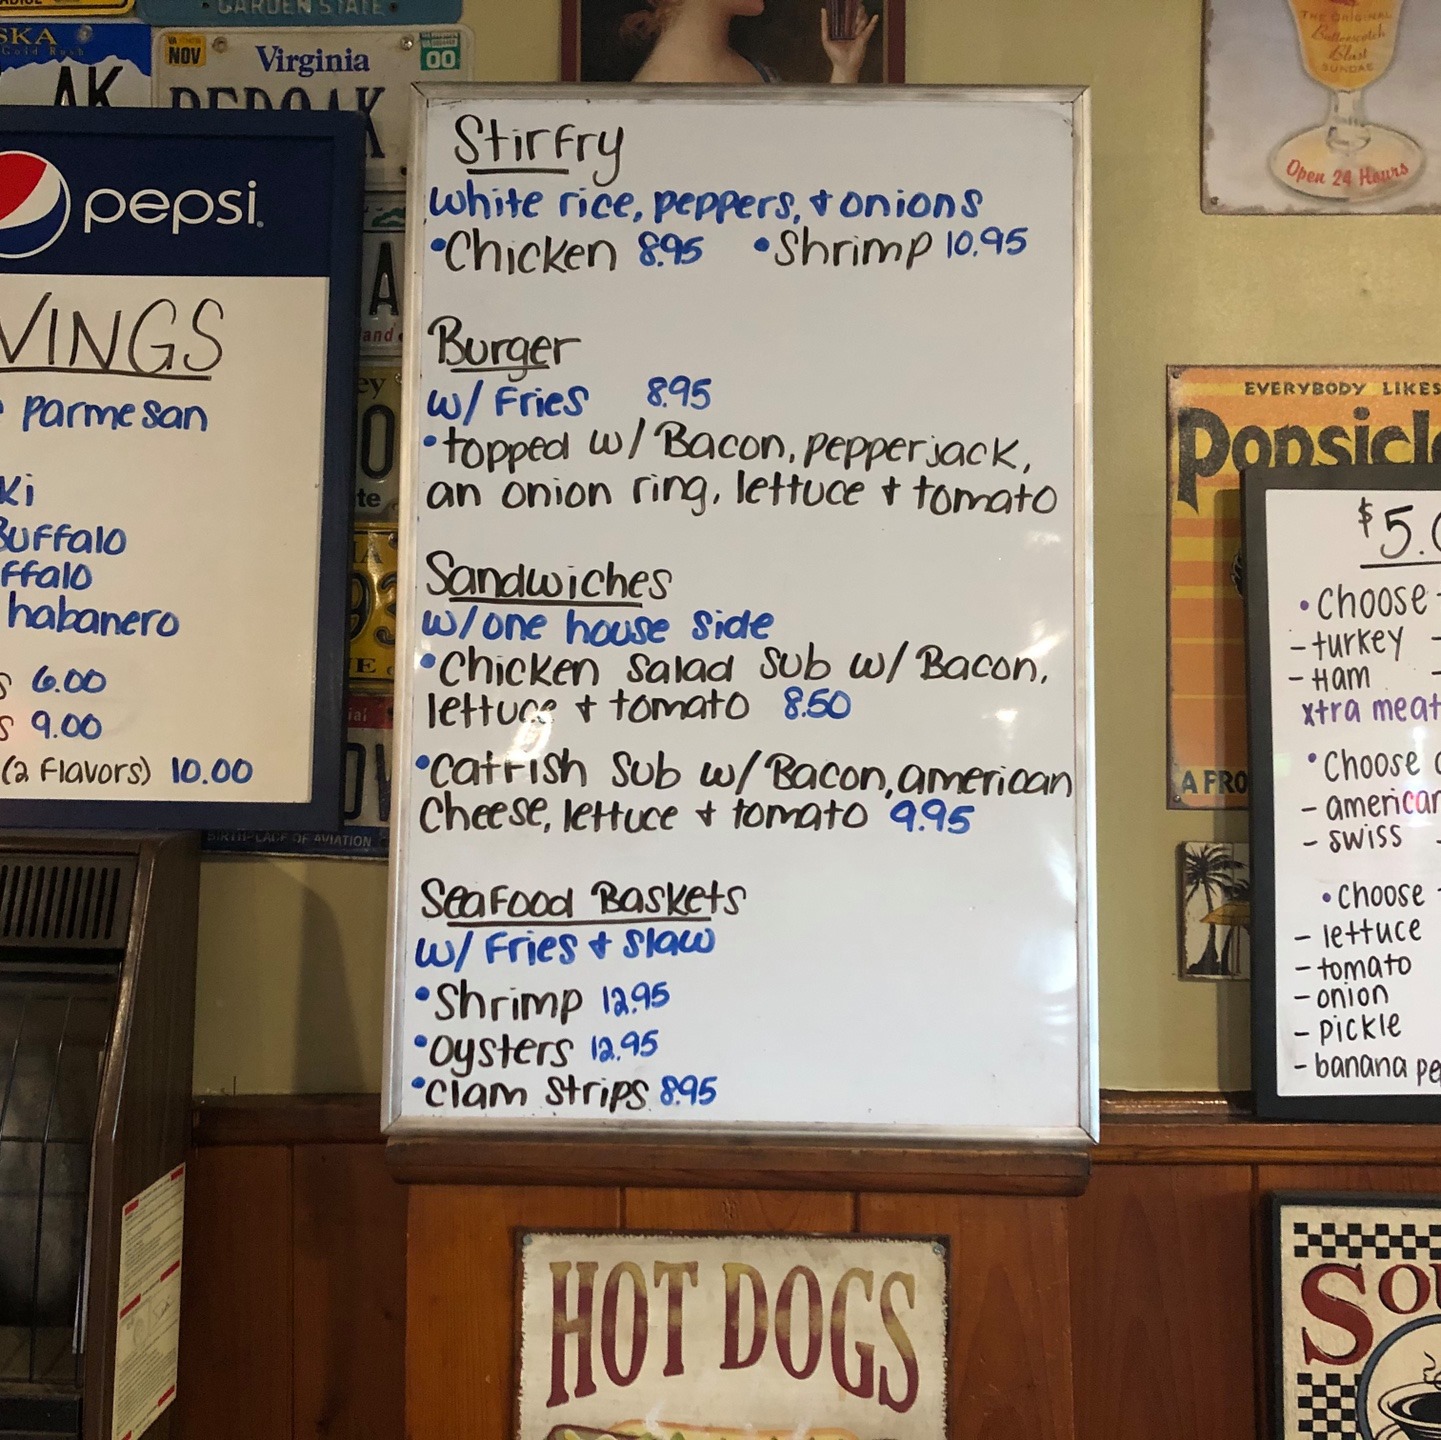 GARDEN STATE
NOV
Virginia
00
AK
pepsi
WINGS
parmesan
Buffalo
habanero
6.00
9.00
(2 Flavors) 10.00
BIRTHPLACE OF AVIATION
Stirfry
white rice, peppers, + onions
•Chicken 8.95 •Shrimp 10.95
Burger
w/ Fries 8.95
•topped w/ Bacon, pepperjack,
an onion ring, lettuce + tomato
Sandwiches
w/one house side
•Chicken salad sub w/ Bacon,
lettuce + tomato 8.50
•Catfish sub w/ Bacon, american
cheese, lettuce + tomato 9.95
Seafood Baskets
w/ Fries + slaw
•Shrimp 12.95
•Oysters 12.95
•Clam Strips 8.95
HOT DOGS
THE ORIGINAL
Butterscotch
Blast
SUNDAE
Open 24 Hours
EVERYBODY LIKES
Popsicl
A FRO
$5.0
•Choose
-turkey
-Ham
xtra meat
•Choose
-american
-swiss
•Choose
-lettuce
-tomato
-onion
-pickle
-banana pe
SOU